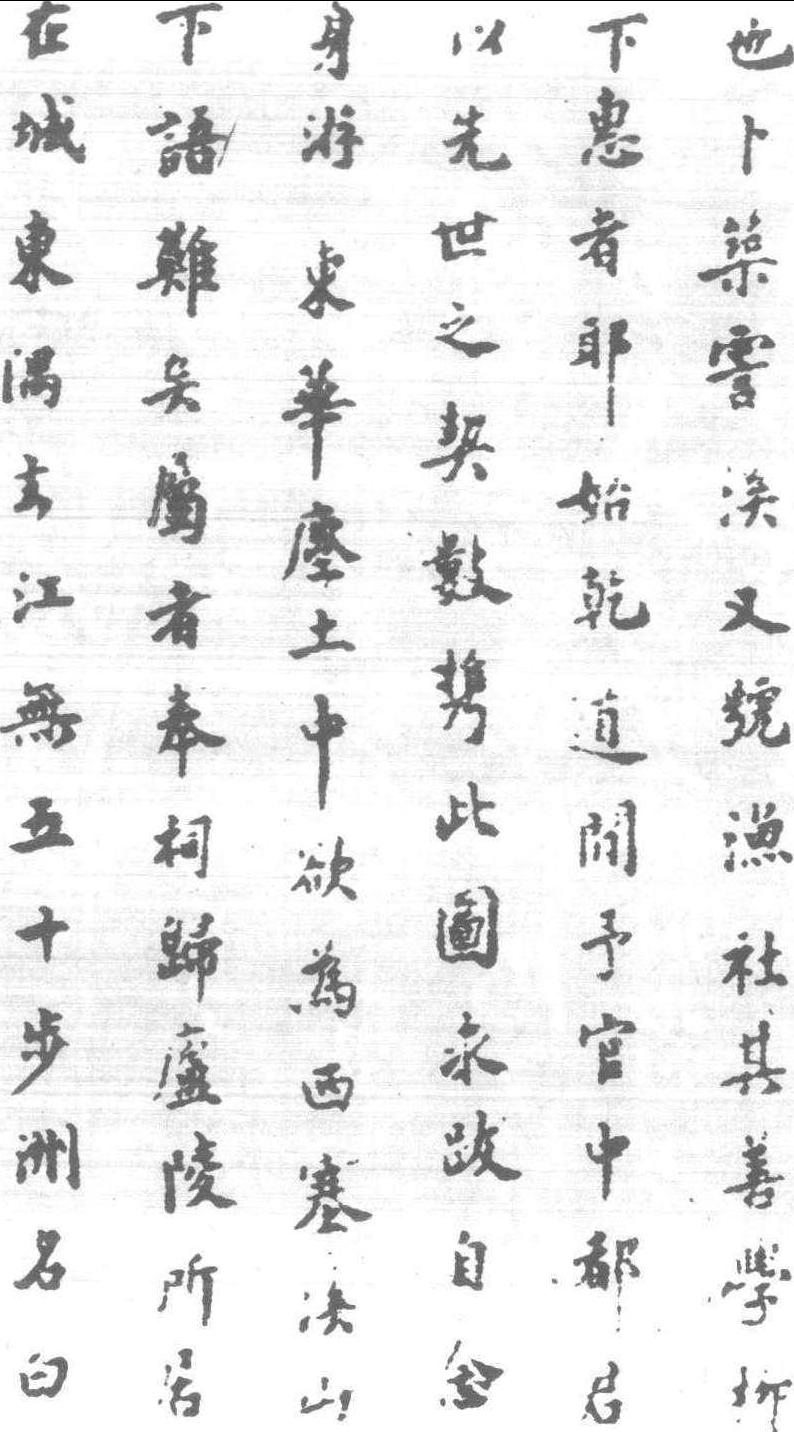 也卜築霅溪又號漁社其善學柳
下惠者耶始乾道間予官中都君
以先世之契數攜此圖求跋自念
身游東華塵土中欲為西塞溪山
下語難矣屬者奉祠歸廬陵所居
在城東隅去江無五十步洲名曰